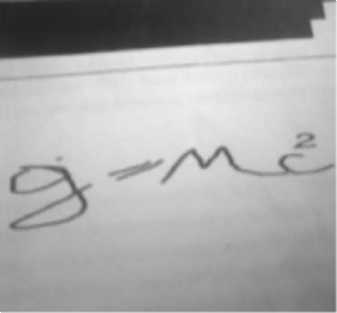 g = mc²